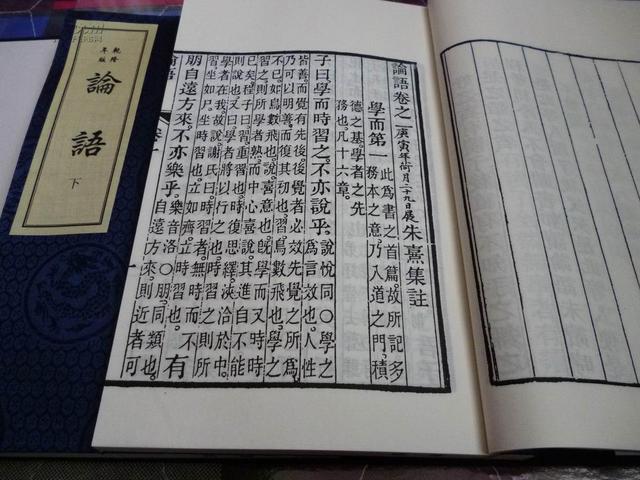 乾隆年版
論語
下
論語卷之一 庚寅年荷月二十九日展 朱熹集註
學而第一 此為書之首篇。故所記多
務本之意。乃入道之門。積
德之基。學者之先
務也。凡十六章。
子曰。學而時習之。不亦說乎。說悅同〇學之
為言效也。人性
皆善。而覺有先後。後覺者必效先覺之所為。
乃可以明善而復其初也。習。鳥數飛也。學之
不已。如鳥數飛也。說。喜意也。既學而又時時
習之。則所學者熟。而中心喜說。其進自不能
已矣。程子曰。習。重習也。時復思繹。浹洽於中。
則說也。又曰。學者將以行之也。時習之。則所
學者在我。故說。謝氏曰。時習者。無時而不
習。坐如尸。坐時習也。立如齊。立時習也。有
朋自遠方來。不亦樂乎。樂音洛〇朋。同類也。
自遠方來。則近者可